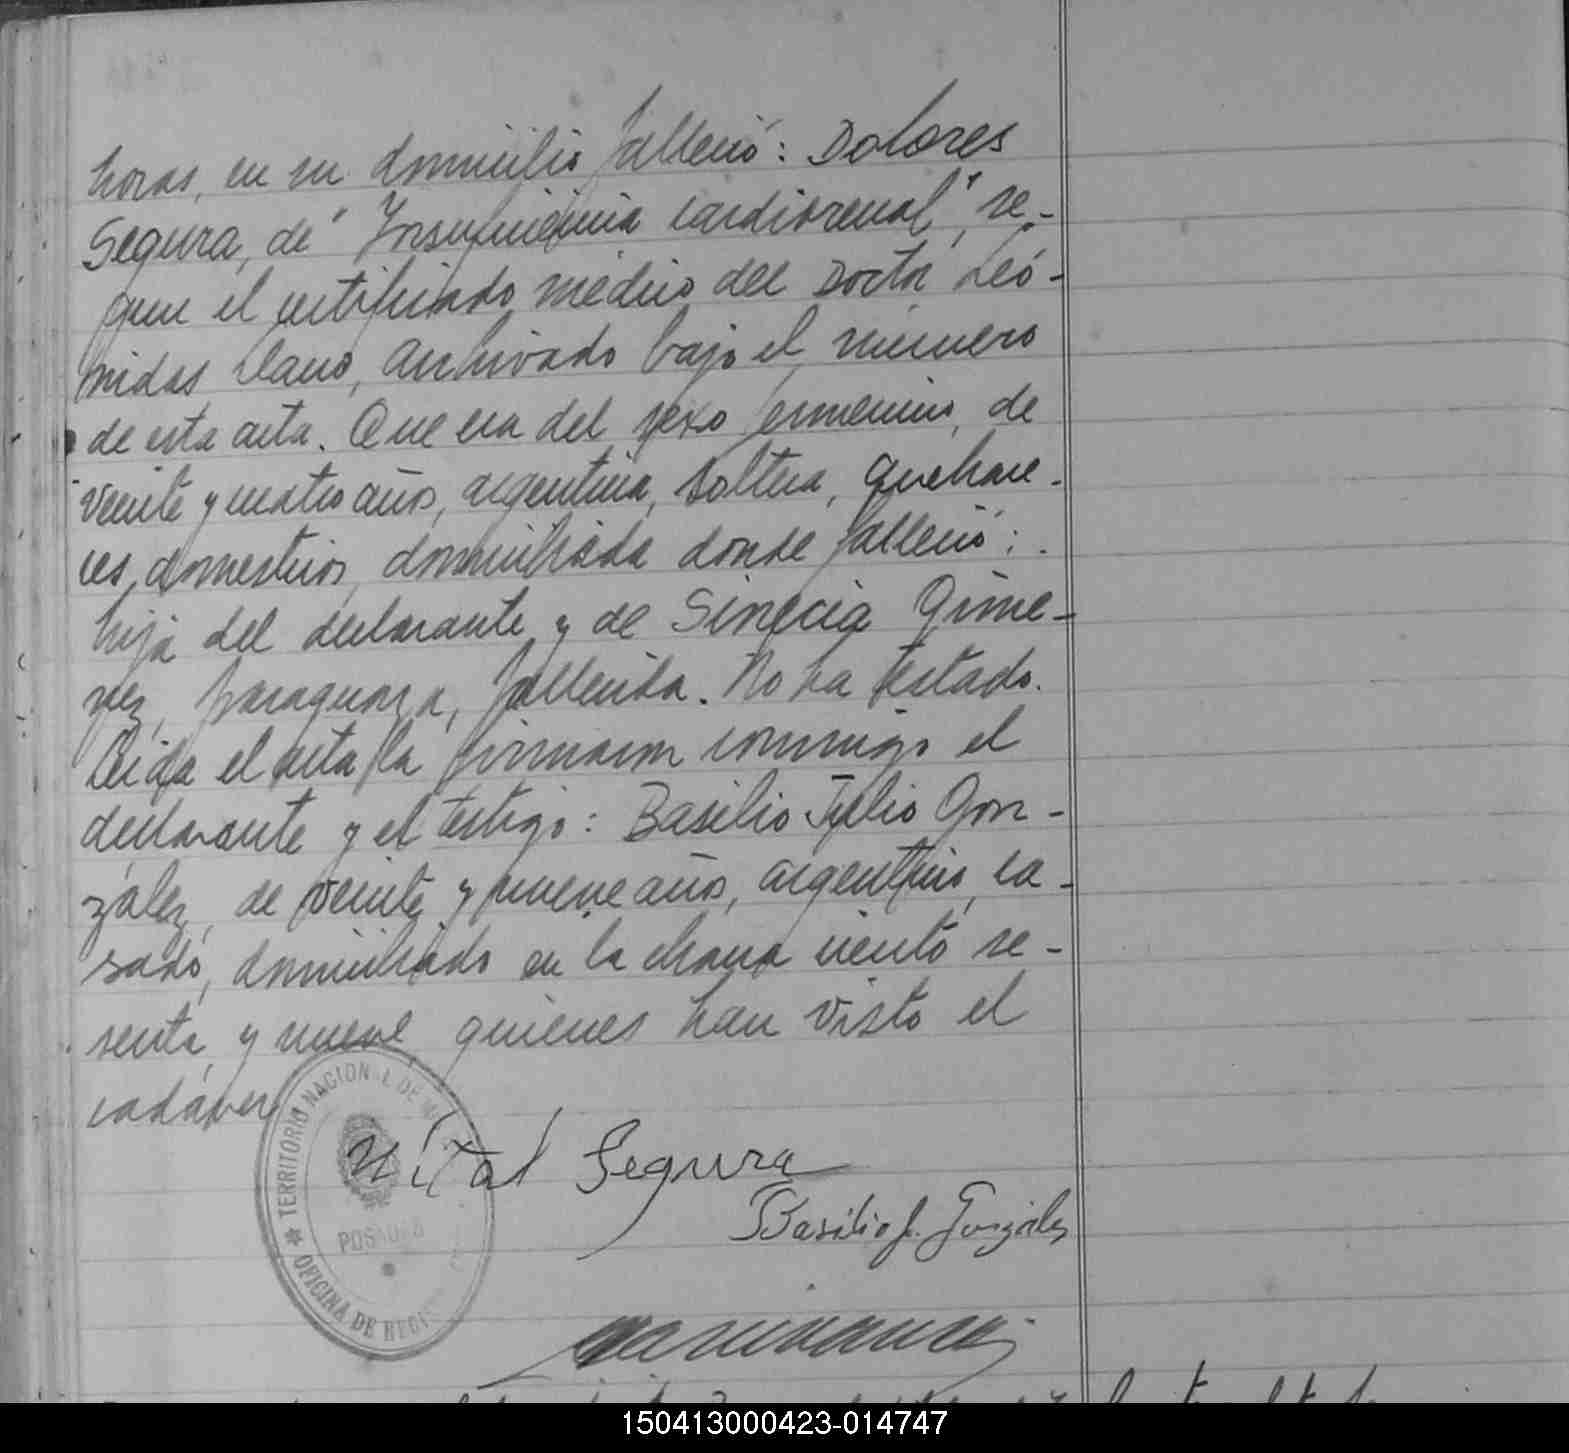 horas, en su domicilio falleció: Dolores
Segura, de "Insuficiencia cardiorenal", se-
gun el certificado médico del Doctor Leó-
nidas Llano, archivado bajo el número
de esta acta. Que era del sexo femenino, de
veinte y cuatro años, argentina, soltera, quehace-
res domesticos, domiciliada donde falleció:
hija del declarante y de Sinecia Gime-
nez, paraguaya, fallecida. No ha testado.
Leida el acta la firmaron conmigo el
declarante y el testigo: Basilio Julio Gon-
zález, de veinte y nueve años, argentino, ca-
sado, domiciliado en la chacra ciento se-
senta y nueve, quienes han visto el
cadáver
TERRITORIO NACIONAL DE
POSADAS
OFICINA DE
Vital Segura
Basilio J. González
150413000423-014747